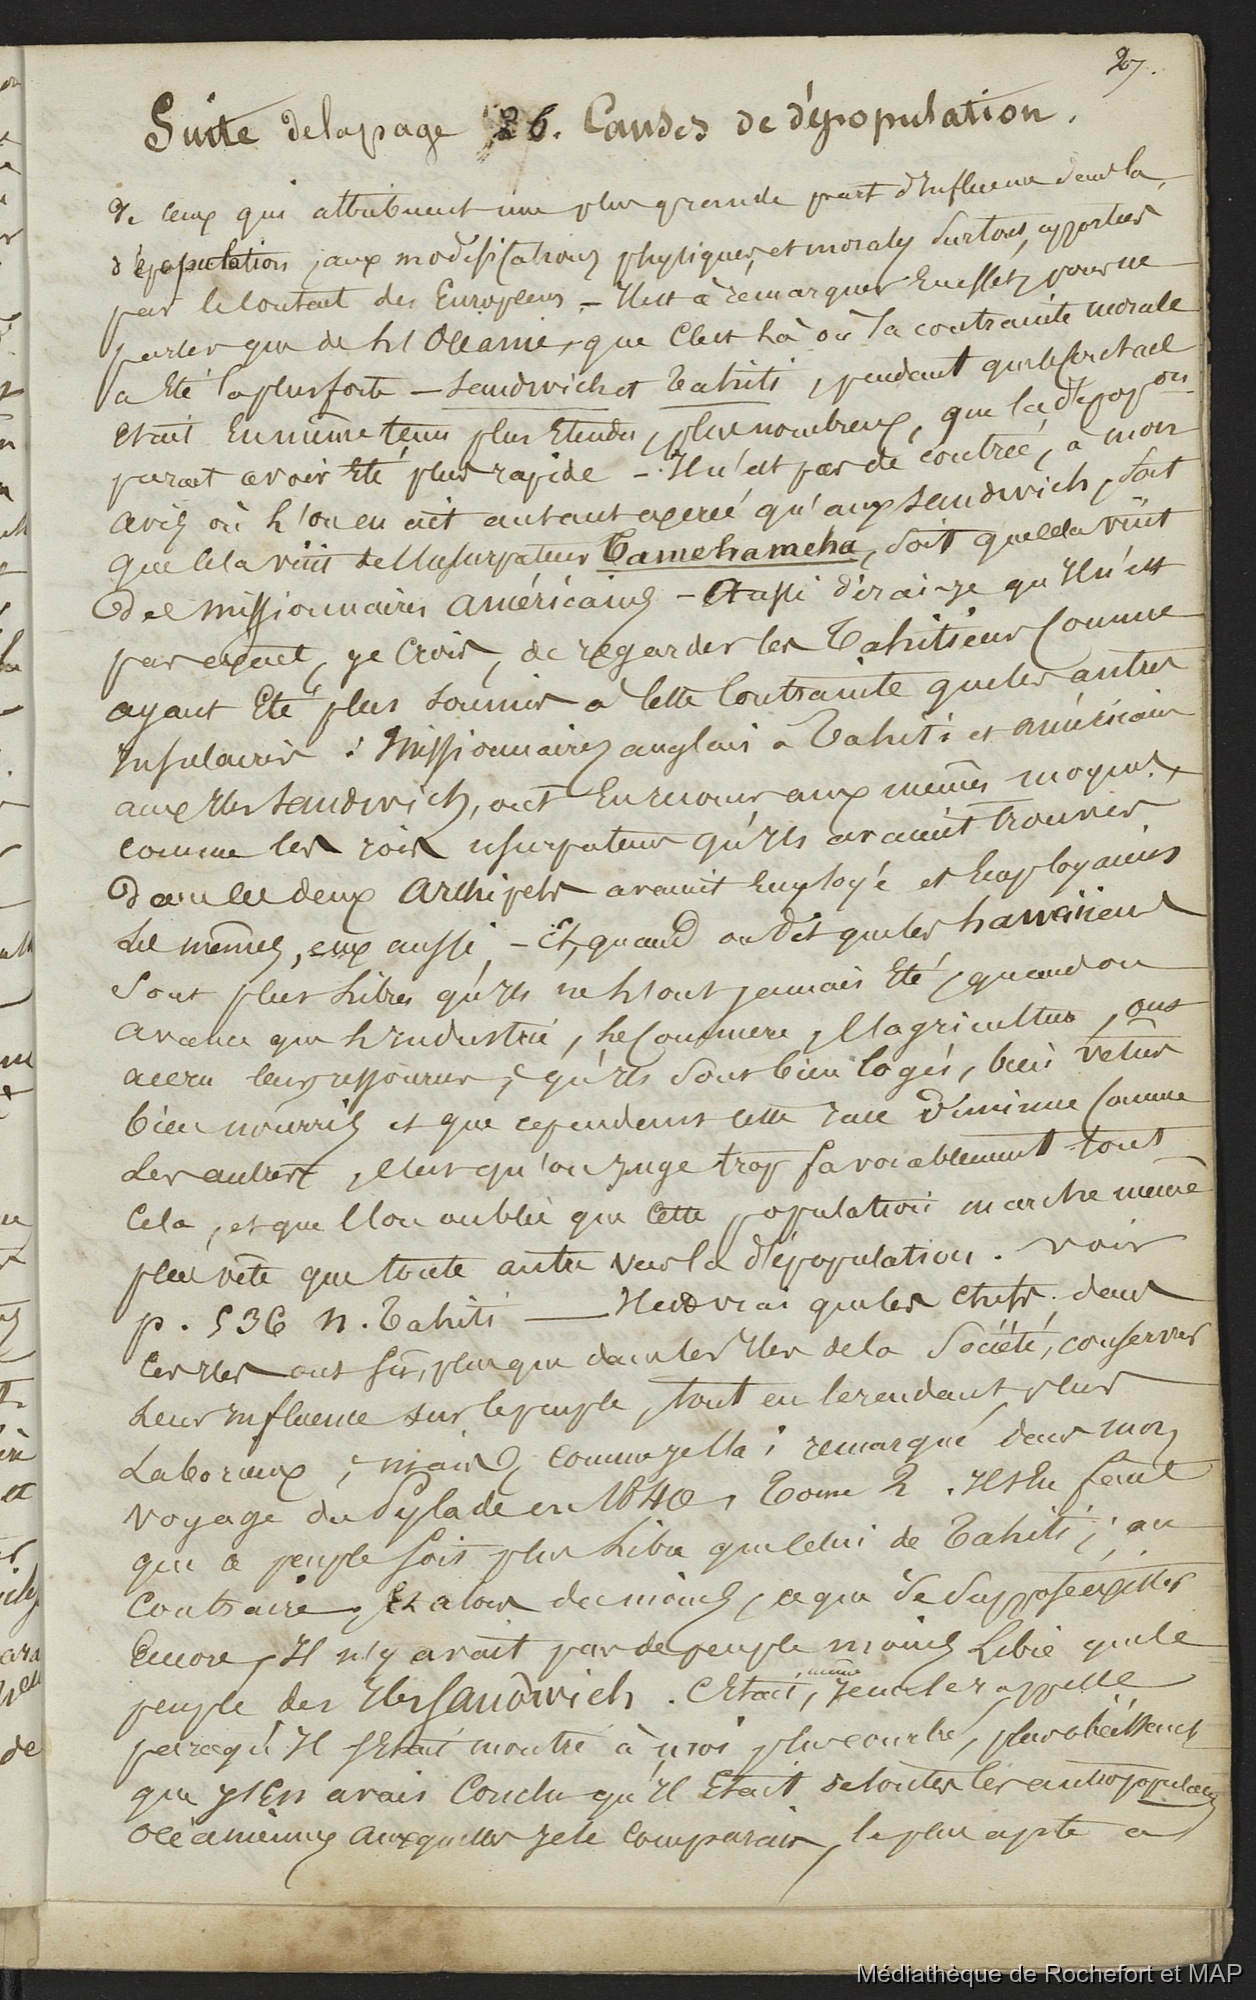 27.
Suite de la page 26. Causes de dépopulation.
De ceux qui attribuent une plus grande part d'influence dans la
dépopulation, aux modifications physiques, et morales surtout, apportées
par le contact des Européens - Il est à remarquer en effet, pour ne
parler que de l'Océanie, que c'est là où la contrainte morale
a été la plus forte - Sandwich et Tahiti, pendant que le contact
était en même tems plus étendu, plus nombreux, que la dépopon
parait avoir été plus rapide - Il n'est pas de contrée, à mon
avis où l'on en ait autant exercé qu'aux Sandwich, soit
que cela vint de l'usurpateur Tamehameha, soit que cela vint
des missionnaires américains - Aussi dirai-je qu'il n'est
pas exact, je crois, de regarder les Tahitiens comme
ayant été plus soumis à cette contrainte que les autres
insulaires : Missionnaires anglais à Tahiti et américains
aux Iles Sandwich, ont eu recours aux mêmes moyens,
comme les rois usurpateurs qu'ils avaient trouvés
dans les deux archipels avaient employé et employaient
les mêmes, eux aussi, - Et, quand on dit que les hawaiiens
sont plus libres qu'ils ne l'ont jamais été, quand on
avance que l'industrie, le commerce, l'agriculture, ont
accru leurs ressources, qu'ils sont bien logés, bien vêtus
bien nourris et que cependant cette race diminue comme
les autres, c'est qu'on juge trop favorablement tout
cela, et que l'on oublie que cette population marche même
plus vite que toute autre vers la dépopulation. voir
p. 536 n. Tahiti — Il est vrai que les chefs, dans
ces Iles ont su, plus que dans les Iles de la Société, conserver
leur influence sur le peuple, tout en le rendant plus
laborieux, mais, comme je l'ai remarqué dans mon
voyage du Pylade en 1840, Tome 2. Il s'en faut
que ce peuple soit plus libre que celui de Tahiti; au
contraire, Et alors du moins, ce que je suppose exister
encore, Il n'y avait pas de peuple moins libre que le
peuple des Iles Sandwich. C'était même, je me le rappelle
parcequ'il s'était montré à moi plus courbé, plus obéissant
que j'en avais conclu qu'il était de toutes les autres populations
océaniennes auxquelles je le comparais, le plus apte a
Médiathèque de Rochefort et MAP